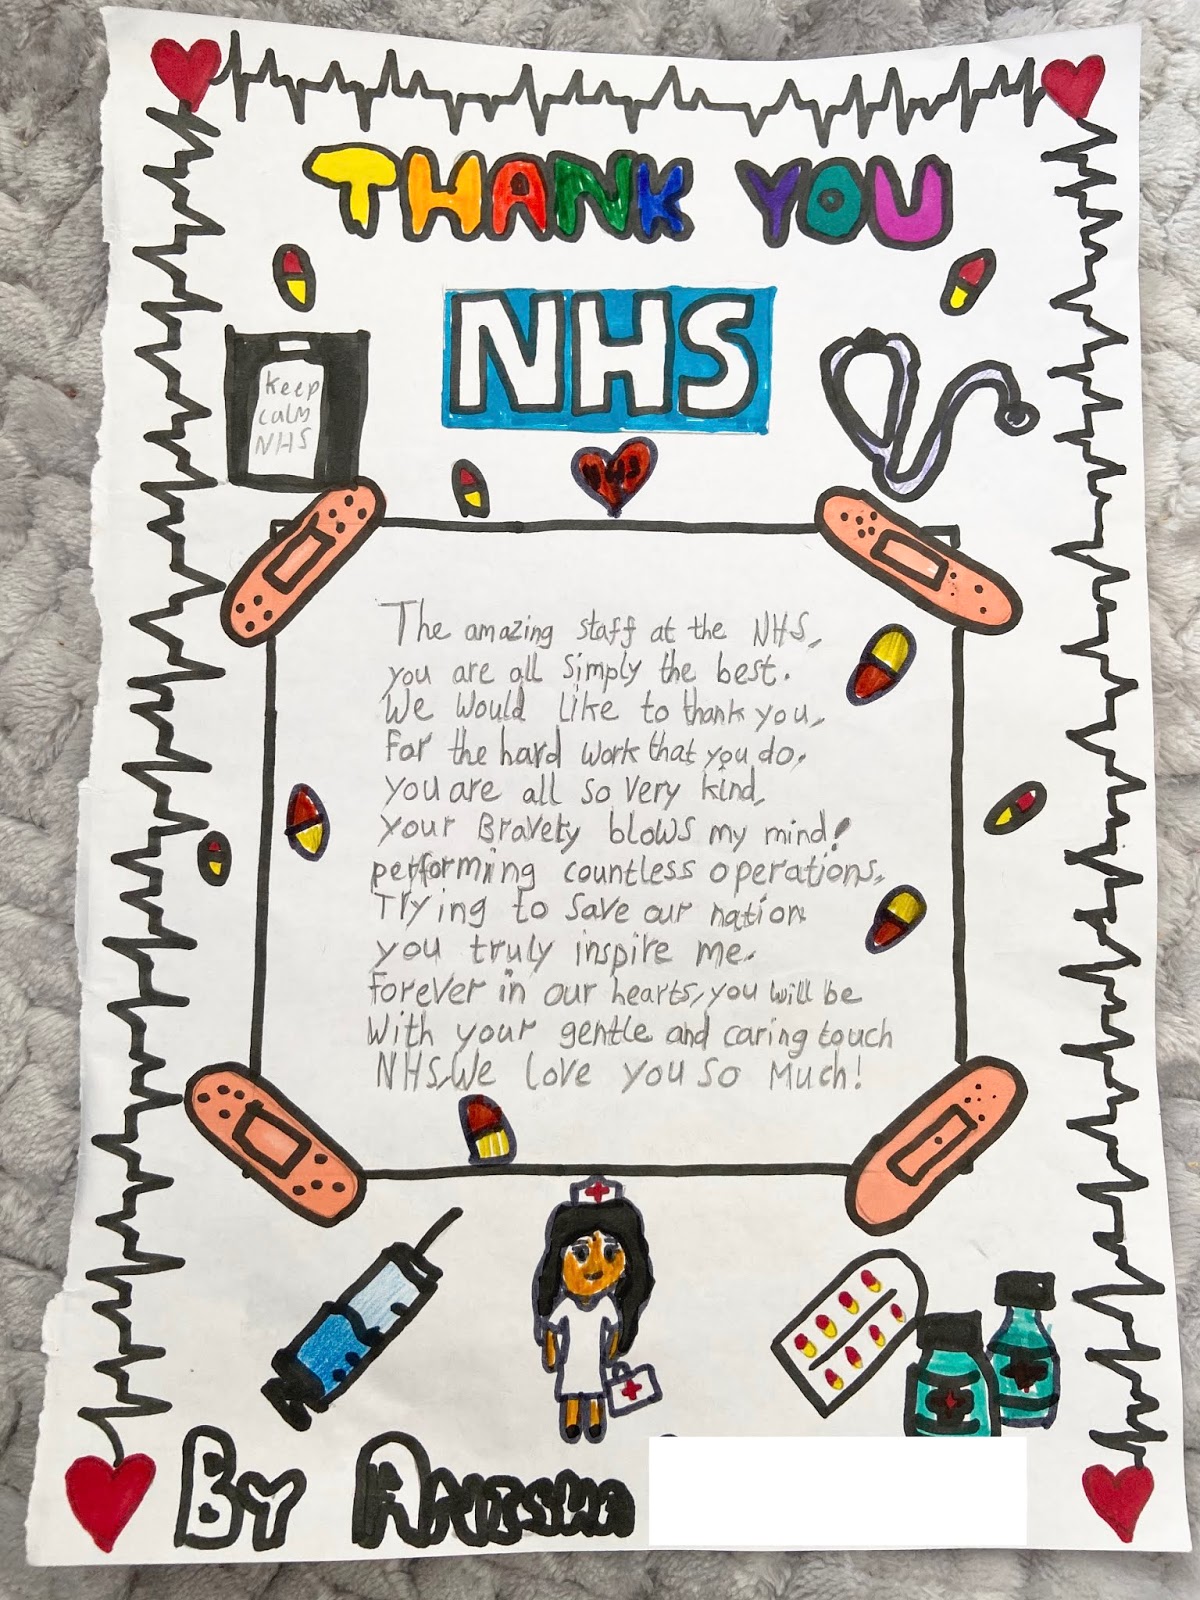 THANK YOU
NHS
keep
calm
NHS
NHS
The amazing staff at the NHS,
you are all simply the best.
We would like to thank you,
for the hard work that you do.
you are all so very kind,
your Bravery blows my mind!
performing countless operations,
Trying to save our nation
you truly inspire me.
forever in our hearts, you will be
With your gentle and caring touch
NHS, We love you so much!
By